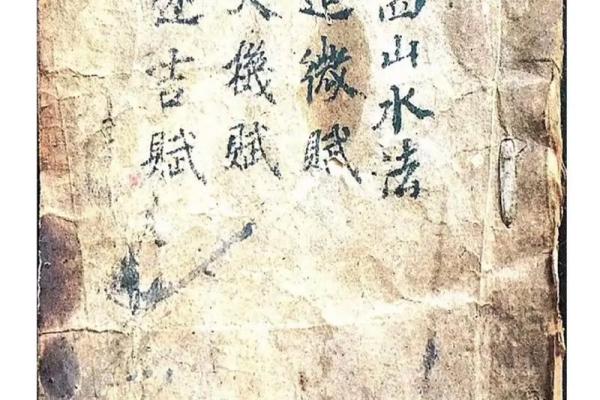 山水法
微賦
天機賦
吉賦